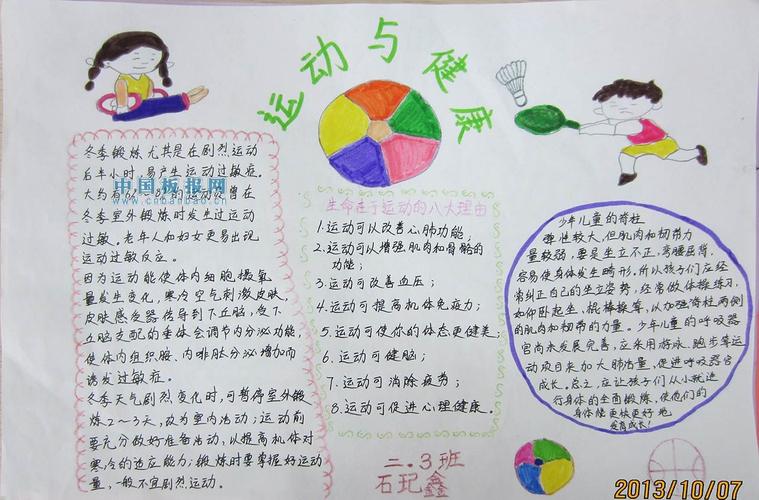 运动与健康
冬季锻炼尤其是在剧烈运动
后半小时,易产生运动过敏症。
中国板报网
www.cnbanbao.cn
冬季室外锻炼时发生过运动
过敏。老年人和妇女更易出现
运动过敏反应。
因为运动能使体内细胞摄氧
量发生变化,寒冷空气刺激皮肤,
皮肤感受器传导到下丘脑,受下
丘脑支配的垂体会调节内分泌功能,
使体内组织胺、内啡肽分泌增加而
诱发过敏症。
冬季天气剧烈变化时,可暂停室外锻
炼2~3天,改为室内活动;运动前
要充分做好准备活动,以提高机体对
寒冷的适应能力;锻炼时要掌握好运动
量,一般不宜剧烈运动。
生命在于运动的八大理由
1.运动可以改善心肺功能;
2.运动可以增强肌肉和骨骼的
功能;
3.运动可改善血压;
4.运动可提高机体免疫力;
5.运动可使你的体态更健美;
6.运动可健脑;
7.运动可消除疲劳;
8.运动可促进心理健康。
少年儿童的脊柱
弹性较大,但肌肉和韧带力
量较弱,要是坐立不正,弯腰屈背,
容易使身体发生畸形,所以孩子们应经
常纠正自己的坐立姿势,经常做体操练习,
如仰卧起坐、棍棒操等,以加强脊柱两侧
的肌肉和韧带的力量。少年儿童的呼吸器
官尚未发展完善,应采用游泳、跑步等运
动项目来加大肺活量,促进呼吸器官
成长。总之,应让孩子们从小就进
行身体的全面锻炼,使他们的
身体能更快更好地
发育成长!
二.3班
石玘鑫
2013/10/07